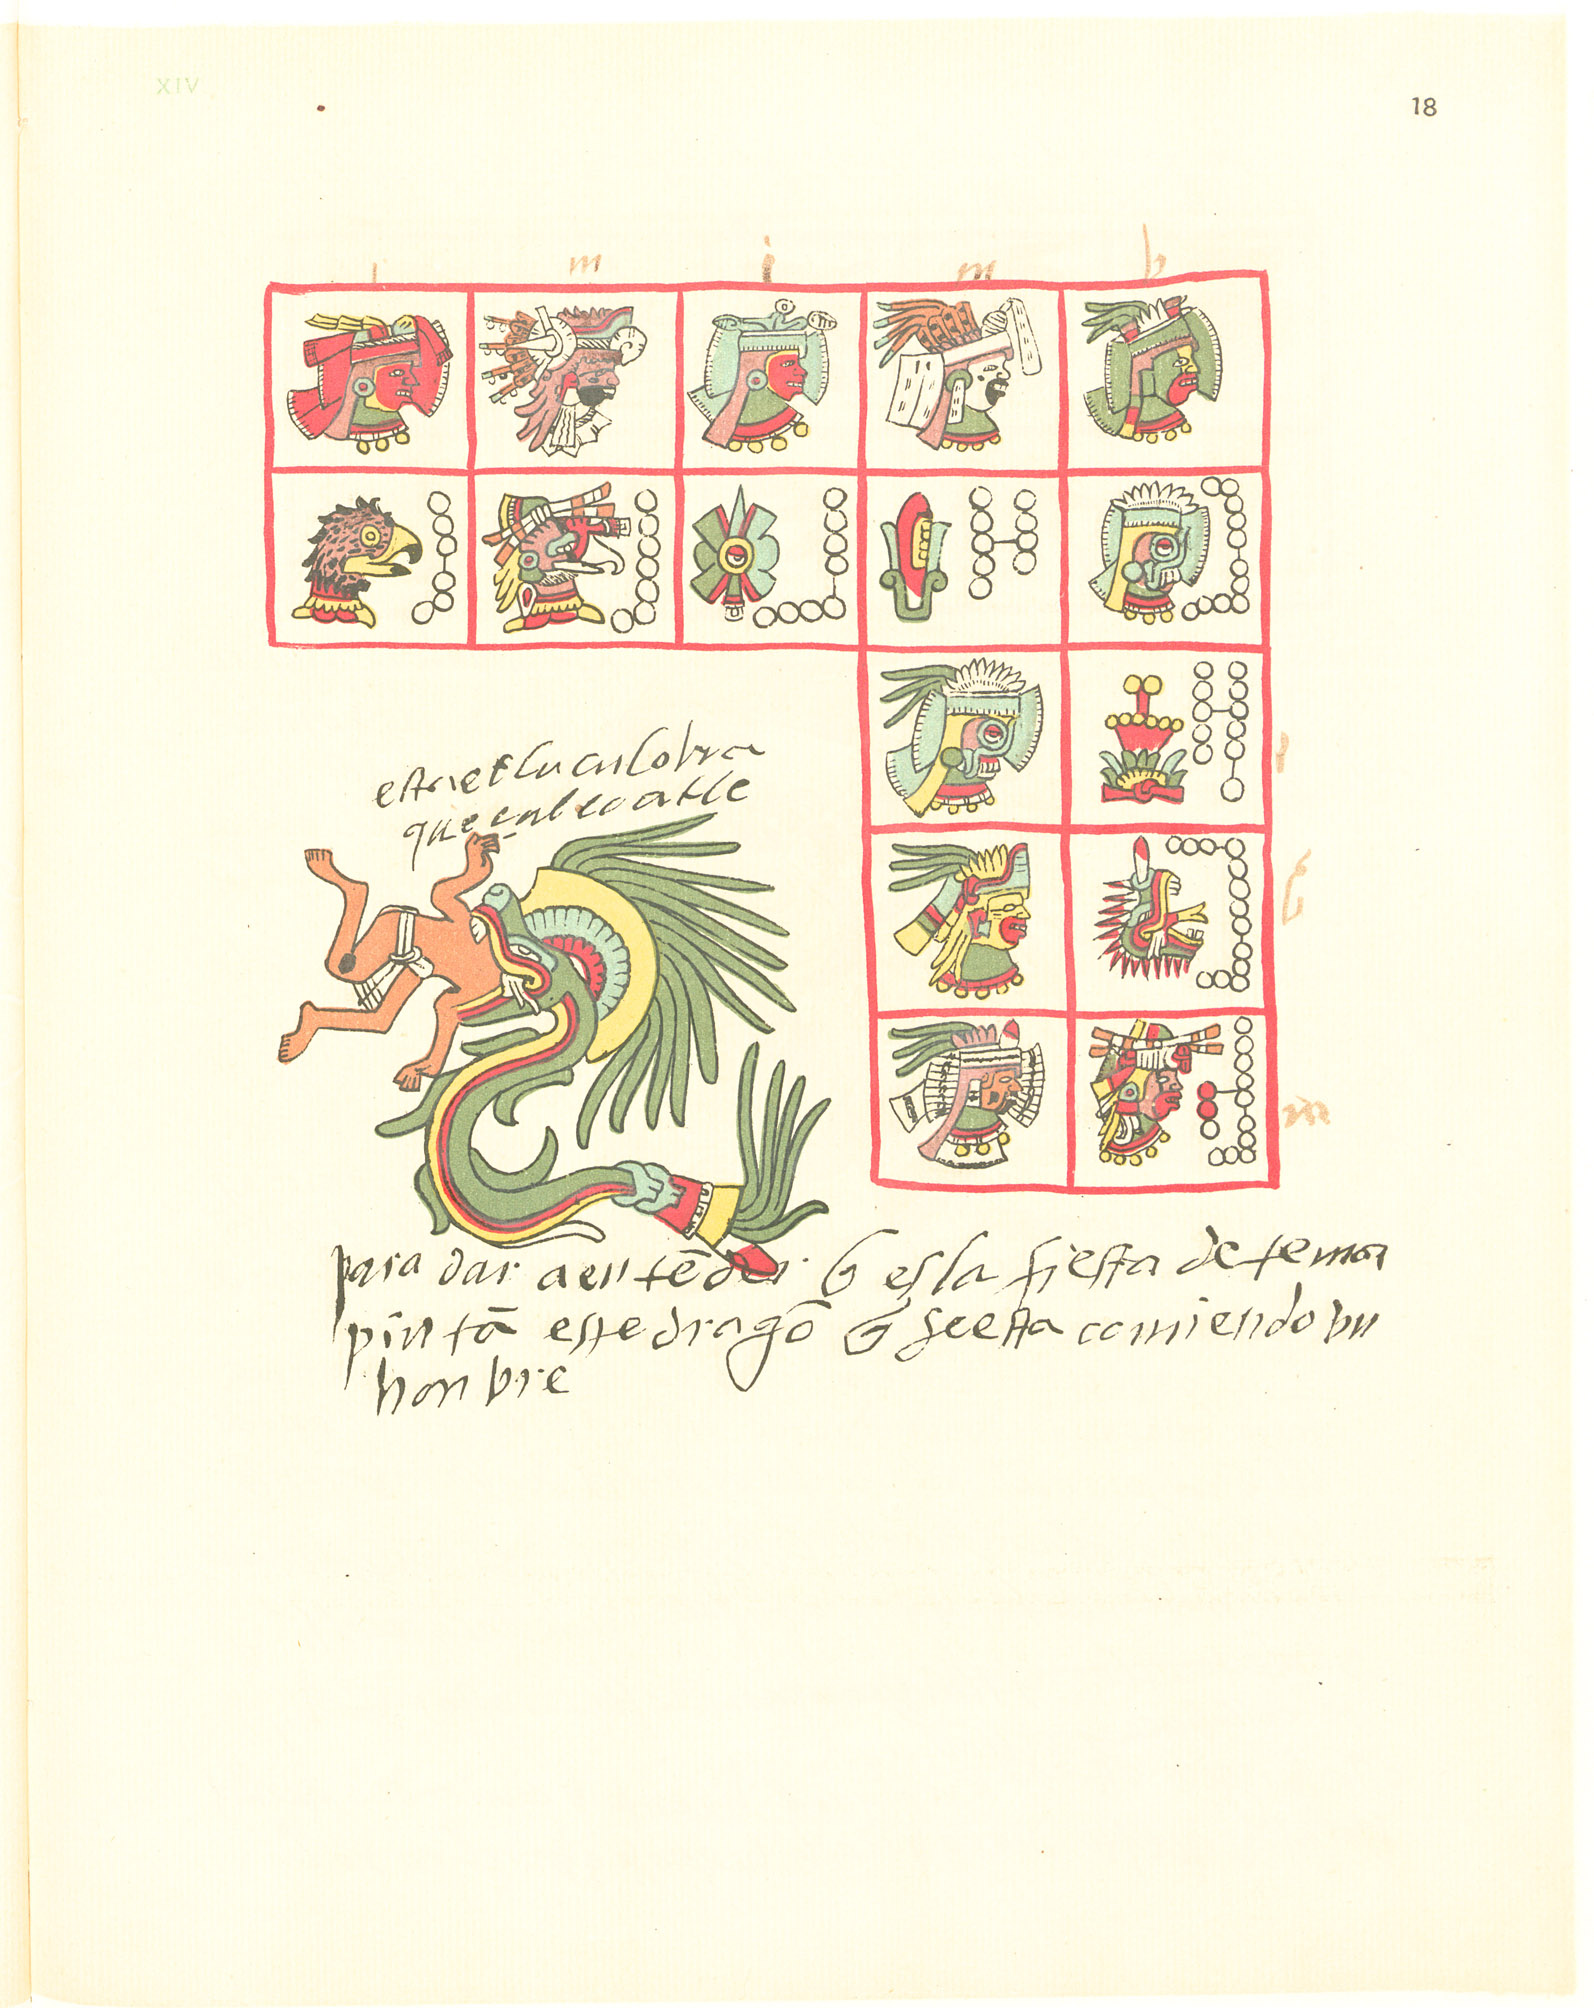 XIV
18
i m i m b
esta es la culebra
queçalcoatle
i
b
m
para dar a entēder q̃ es la fiesta de temor
pintā este dragō q̃ se esta comiendo vn
honbre